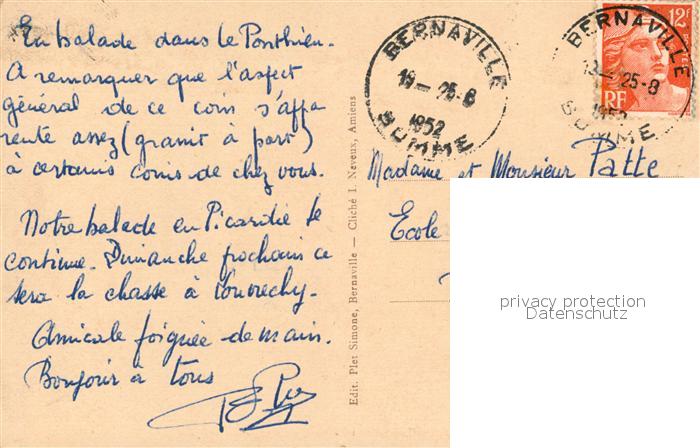 En balade dans le Ponthieu.
A remarquer que l'aspect
général de ce coin s'appa
rente assez (granit à part)
à certains coins de chez vous.
Notre balade en Picardie se
continue. Dimanche prochain ce
sera la chasse à Louvrechy.
Amicale poignée de main.
Bonjour à tous
Edit. Plet Simone, Bernaville — Cliché I. Neveux, Amiens
BERNAVILLE
19 — 25-8
1952
SOMME
BERNAVILLE
25-8
1952
SOMME
12F
RF
Madame et Monsieur Patte
Ecole
privacy protection
Datenschutz